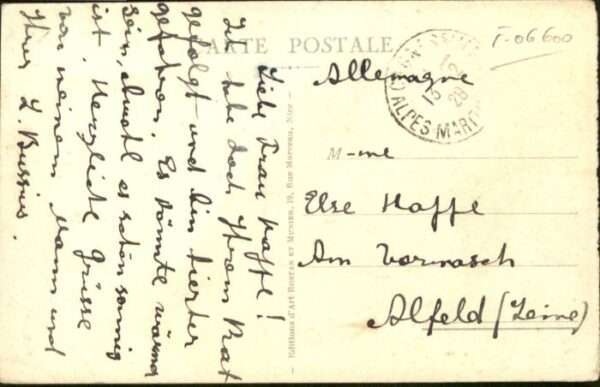 CARTE POSTALE
T-06600
Liebe Frau Haffe!
Ich habe doch Ihrem Rat
gefolgt und bin hierher
gefahren. Es könnte wärmer
sein, obwohl es schön sonnig
ist. Herzliche Grüsse
von meinem Mann und
Ihrer L. Bussius.
Editions d'Art Rostan et Munier, 19, Rue Marceau, Nice
ALPES MARIT
28
Allemagne
M-me
Else Haffe
Am Vormasch
Alfeld (Leine)